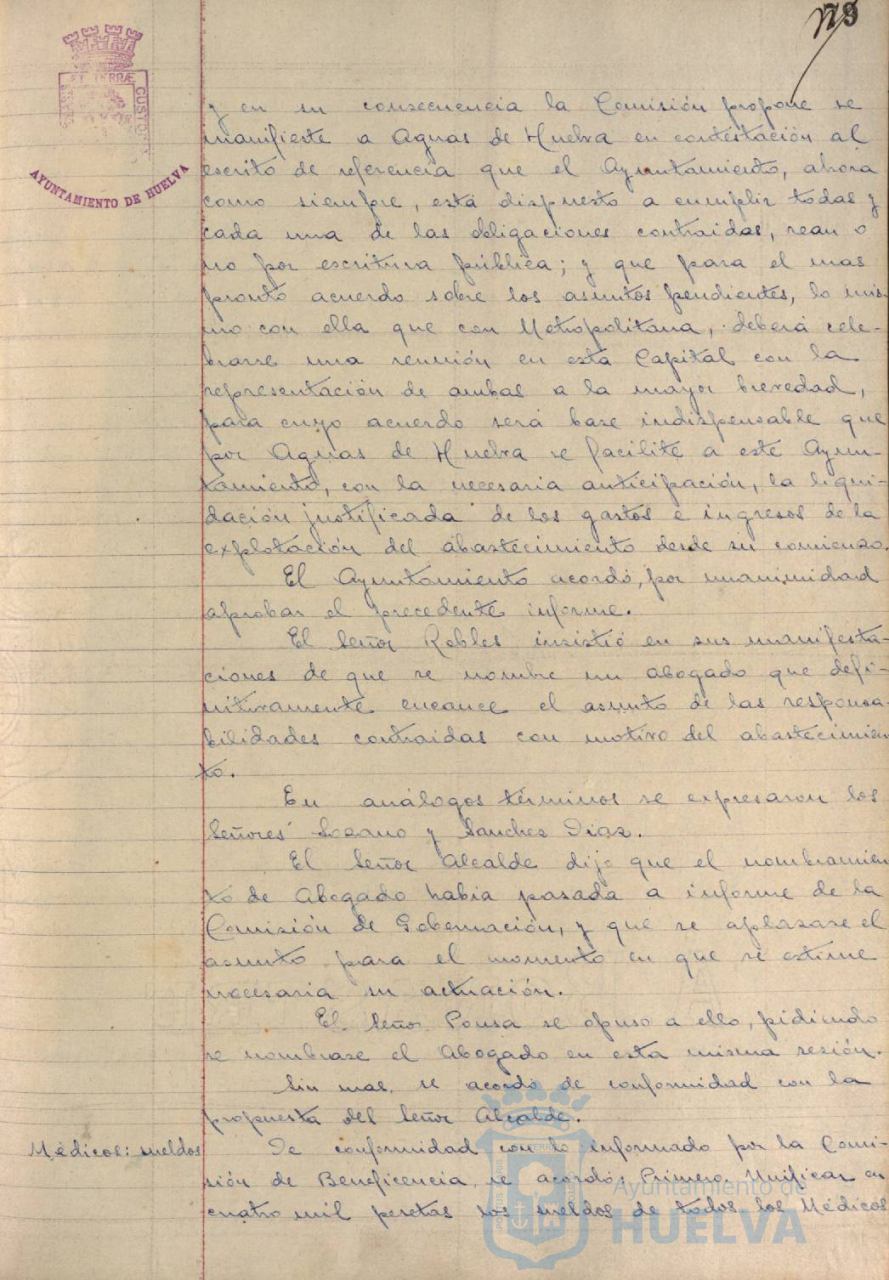 173
AYUNTAMIENTO DE HUELVA
y en su consecuencia la Comisión propone se
manifieste a Aguas de Huelva en contestación al
escrito de referencia que el Ayuntamiento, ahora
como siempre, está dispuesto a cumplir todas y
cada una de las obligaciones contraidas, sean o
no por escritura pública; y que para el mas
pronto acuerdo sobre los asuntos pendientes, lo mis-
mo con ella que con Metropolitana, deberá cele-
brarse una reunión en esta Capital con la
representación de ambas a la mayor brevedad,
para cuyo acuerdo será base indispensable que
por Aguas de Huelva se facilite a este Ayun-
tamiento, con la necesaria anticipación, la liqui-
dación justificada de los gastos e ingresos de la
explotación del abastecimiento desde su comienzo.
El Ayuntamiento acordó, por unanimidad
aprobar el precedente informe.
El Señor Robles insistió en sus manifesta-
ciones de que se nombre un abogado que defi-
nitivamente encauce el asunto de las responsa-
bilidades contraidas con motivo del abastecimien
to.
En análogos términos se expresaron los
Señores Lozano y Sanchez Diaz.
El Señor Alcalde dijo que el nombramien
to de Abogado habia pasado a informe de la
Comisión de Gobernación, y que se aplazase el
asunto para el momento en que se estime
necesaria su actuación.
El Señor Ponsa se opuso a ello, pidiendo
se nombrase el Abogado en esta misma sesión.
Sin mas, se acordo de conformidad con la
propuesta del Señor Alcalde.
Médicos: sueldos
De conformidad con lo informado por la Comi-
sión de Beneficencia, se acordó: Primero. Unificar en
cuatro mil pesetas los sueldos de todos los Médicos
Ayuntamiento de
HUELVA